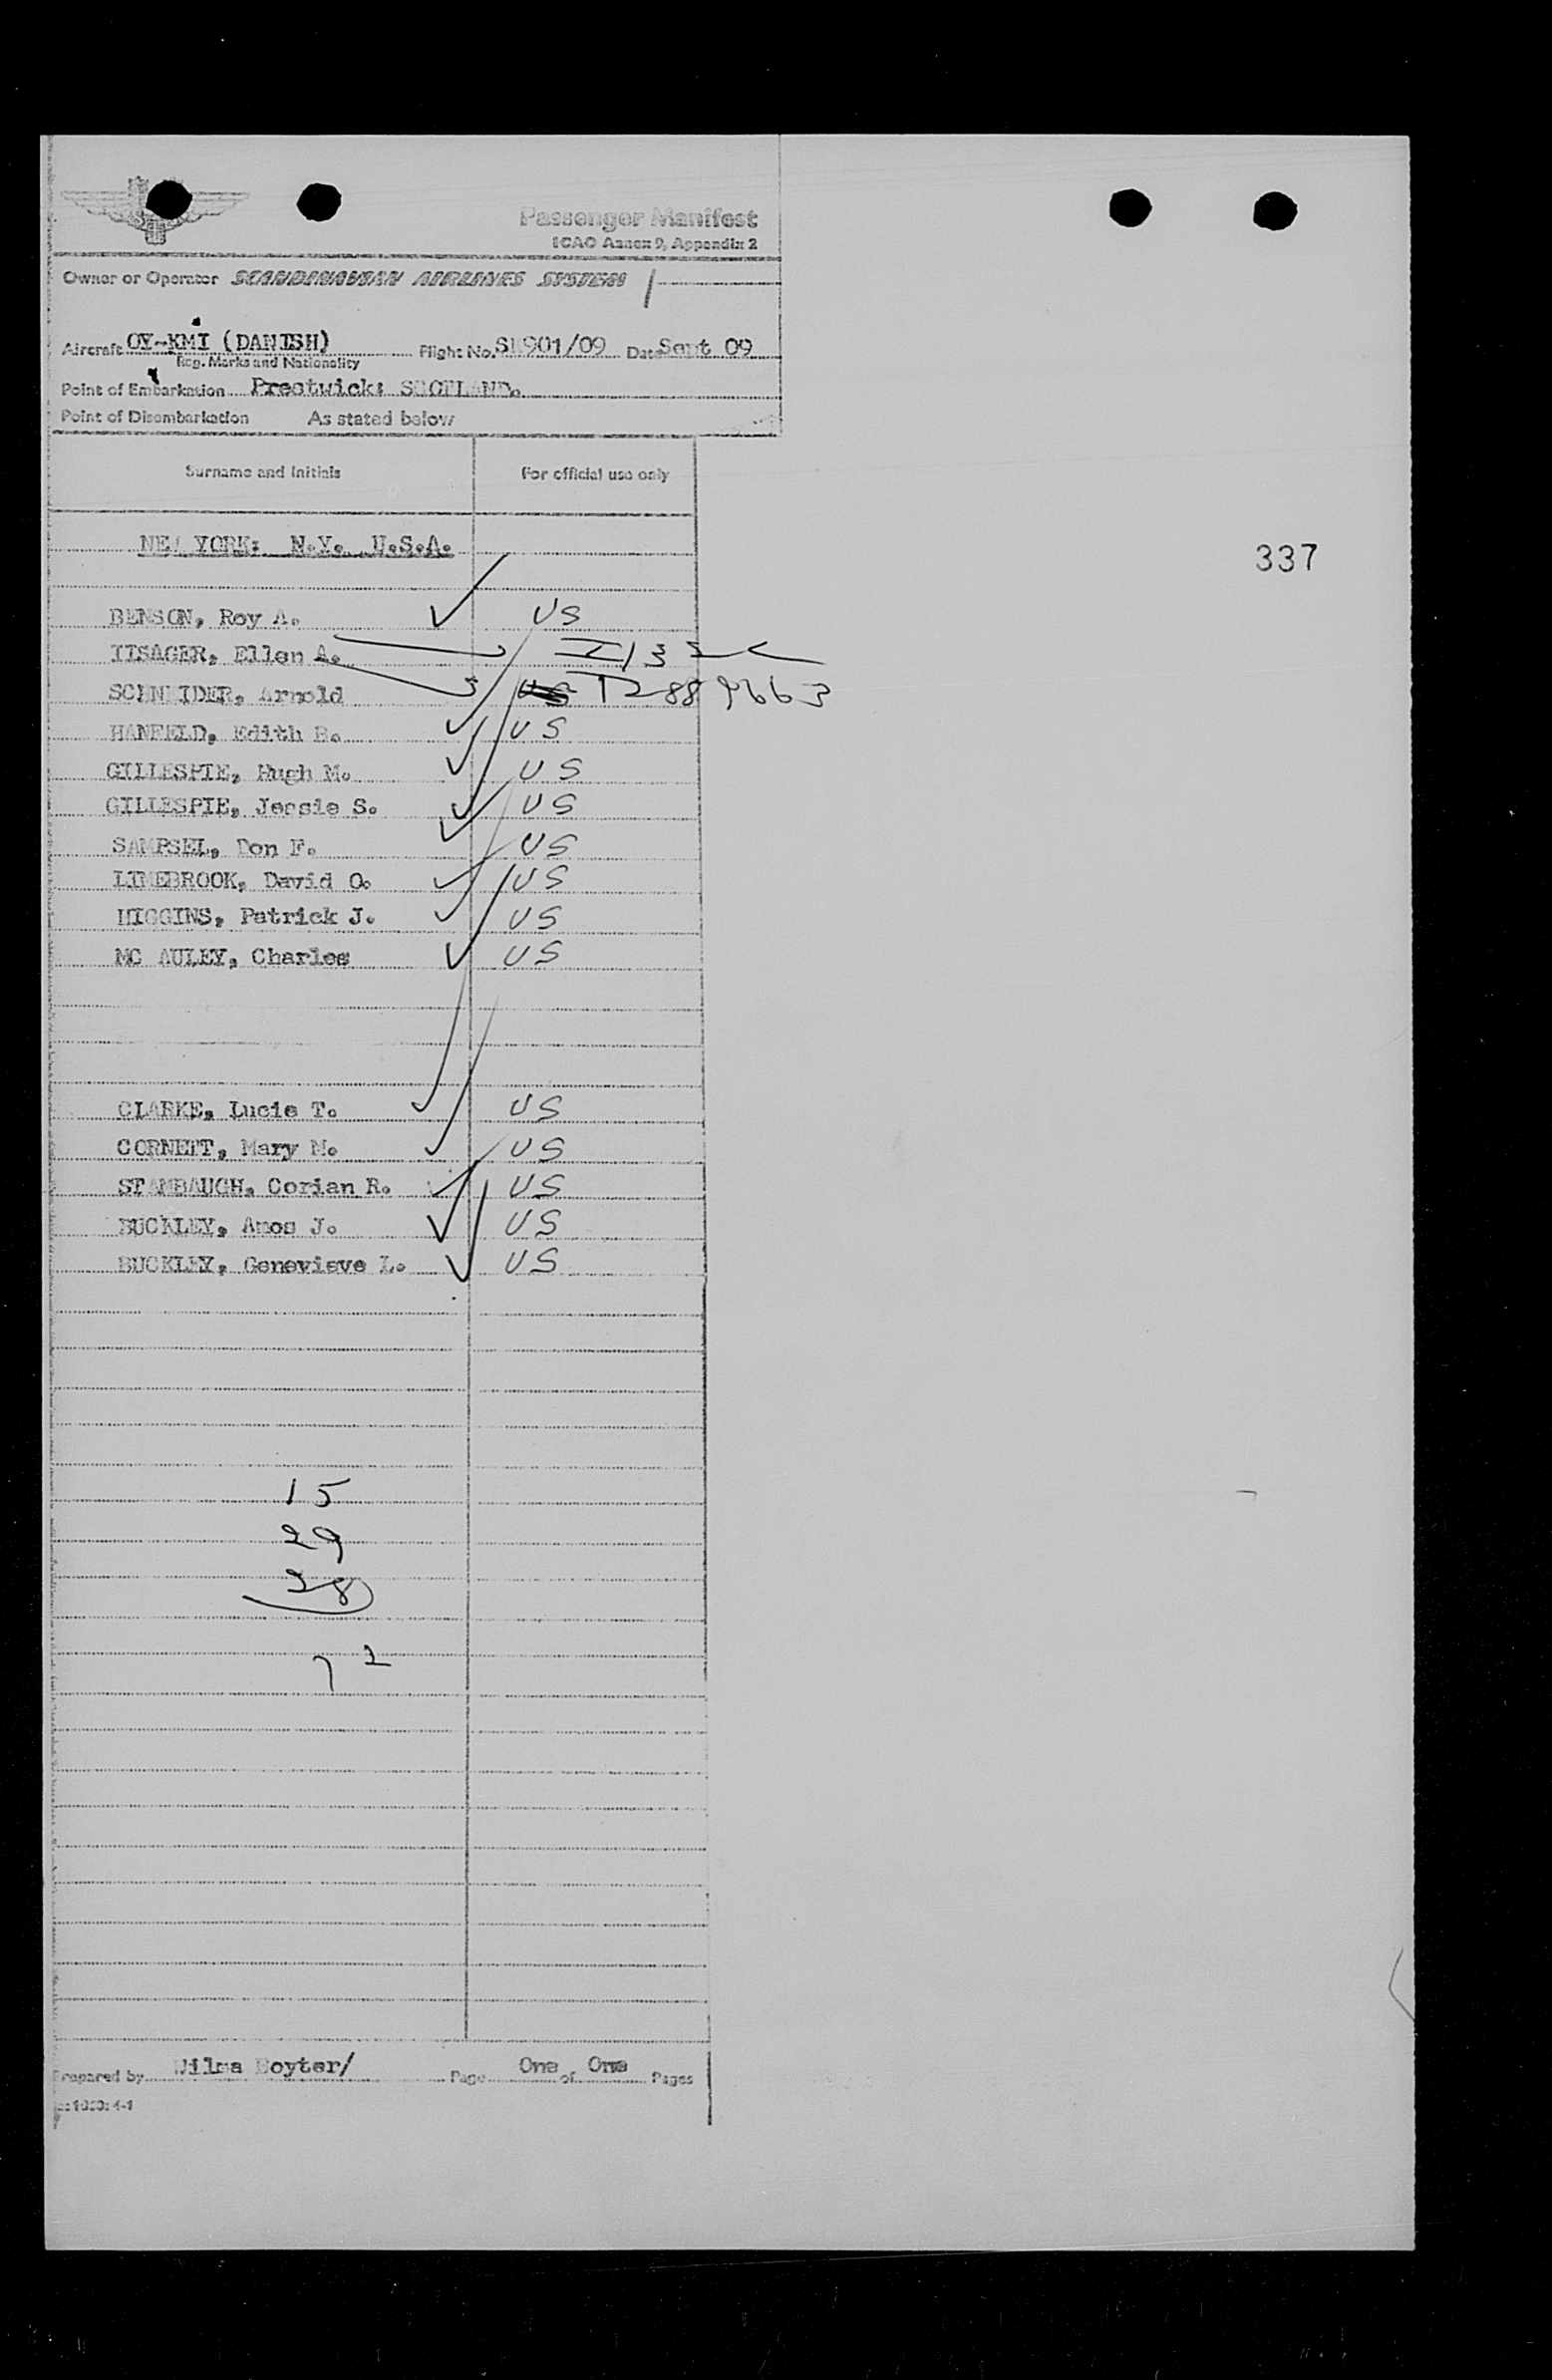 Passenger Manifest
ICAO Annex 9, Appendix 2
Owner or Operator SCANDINAVIAN AIRLINES SYSTEM
Aircraft OY-KMI (DANISH) Flight No. 901/09 Date Sept 09
Reg. Marks and Nationality
Point of Embarkation Prestwick: SCOTLAND.
Point of Disembarkation As stated below
Surname and Initials For official use only
NEW YORK: N.Y. U.S.A.
337
BENSON, Roy A. US
Ellen A.
SCHNEIDER, Arnold
HANFELD, Edith B. US
GILLESPIE, Hugh M. US
GILLESPIE, Jessie S. US
SAMPSEL, Don F. US
LIMEBROOK, David O. US
HIGGINS, Patrick J. US
MC AULEY, Charles US
CLARKE, Lucie T. US
CORNETT, Mary M. US
STAMBAUGH, Corian R. US
BUCKLEY, Amos J. US
BUCKLEY, Genevieve L. US
15
29
28
72
Prepared by Wilma Boyter/ Page One of One Pages